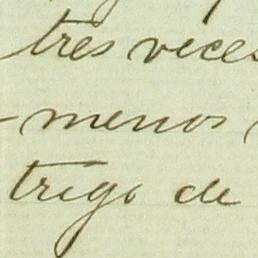 tres veces
menos
trigo de